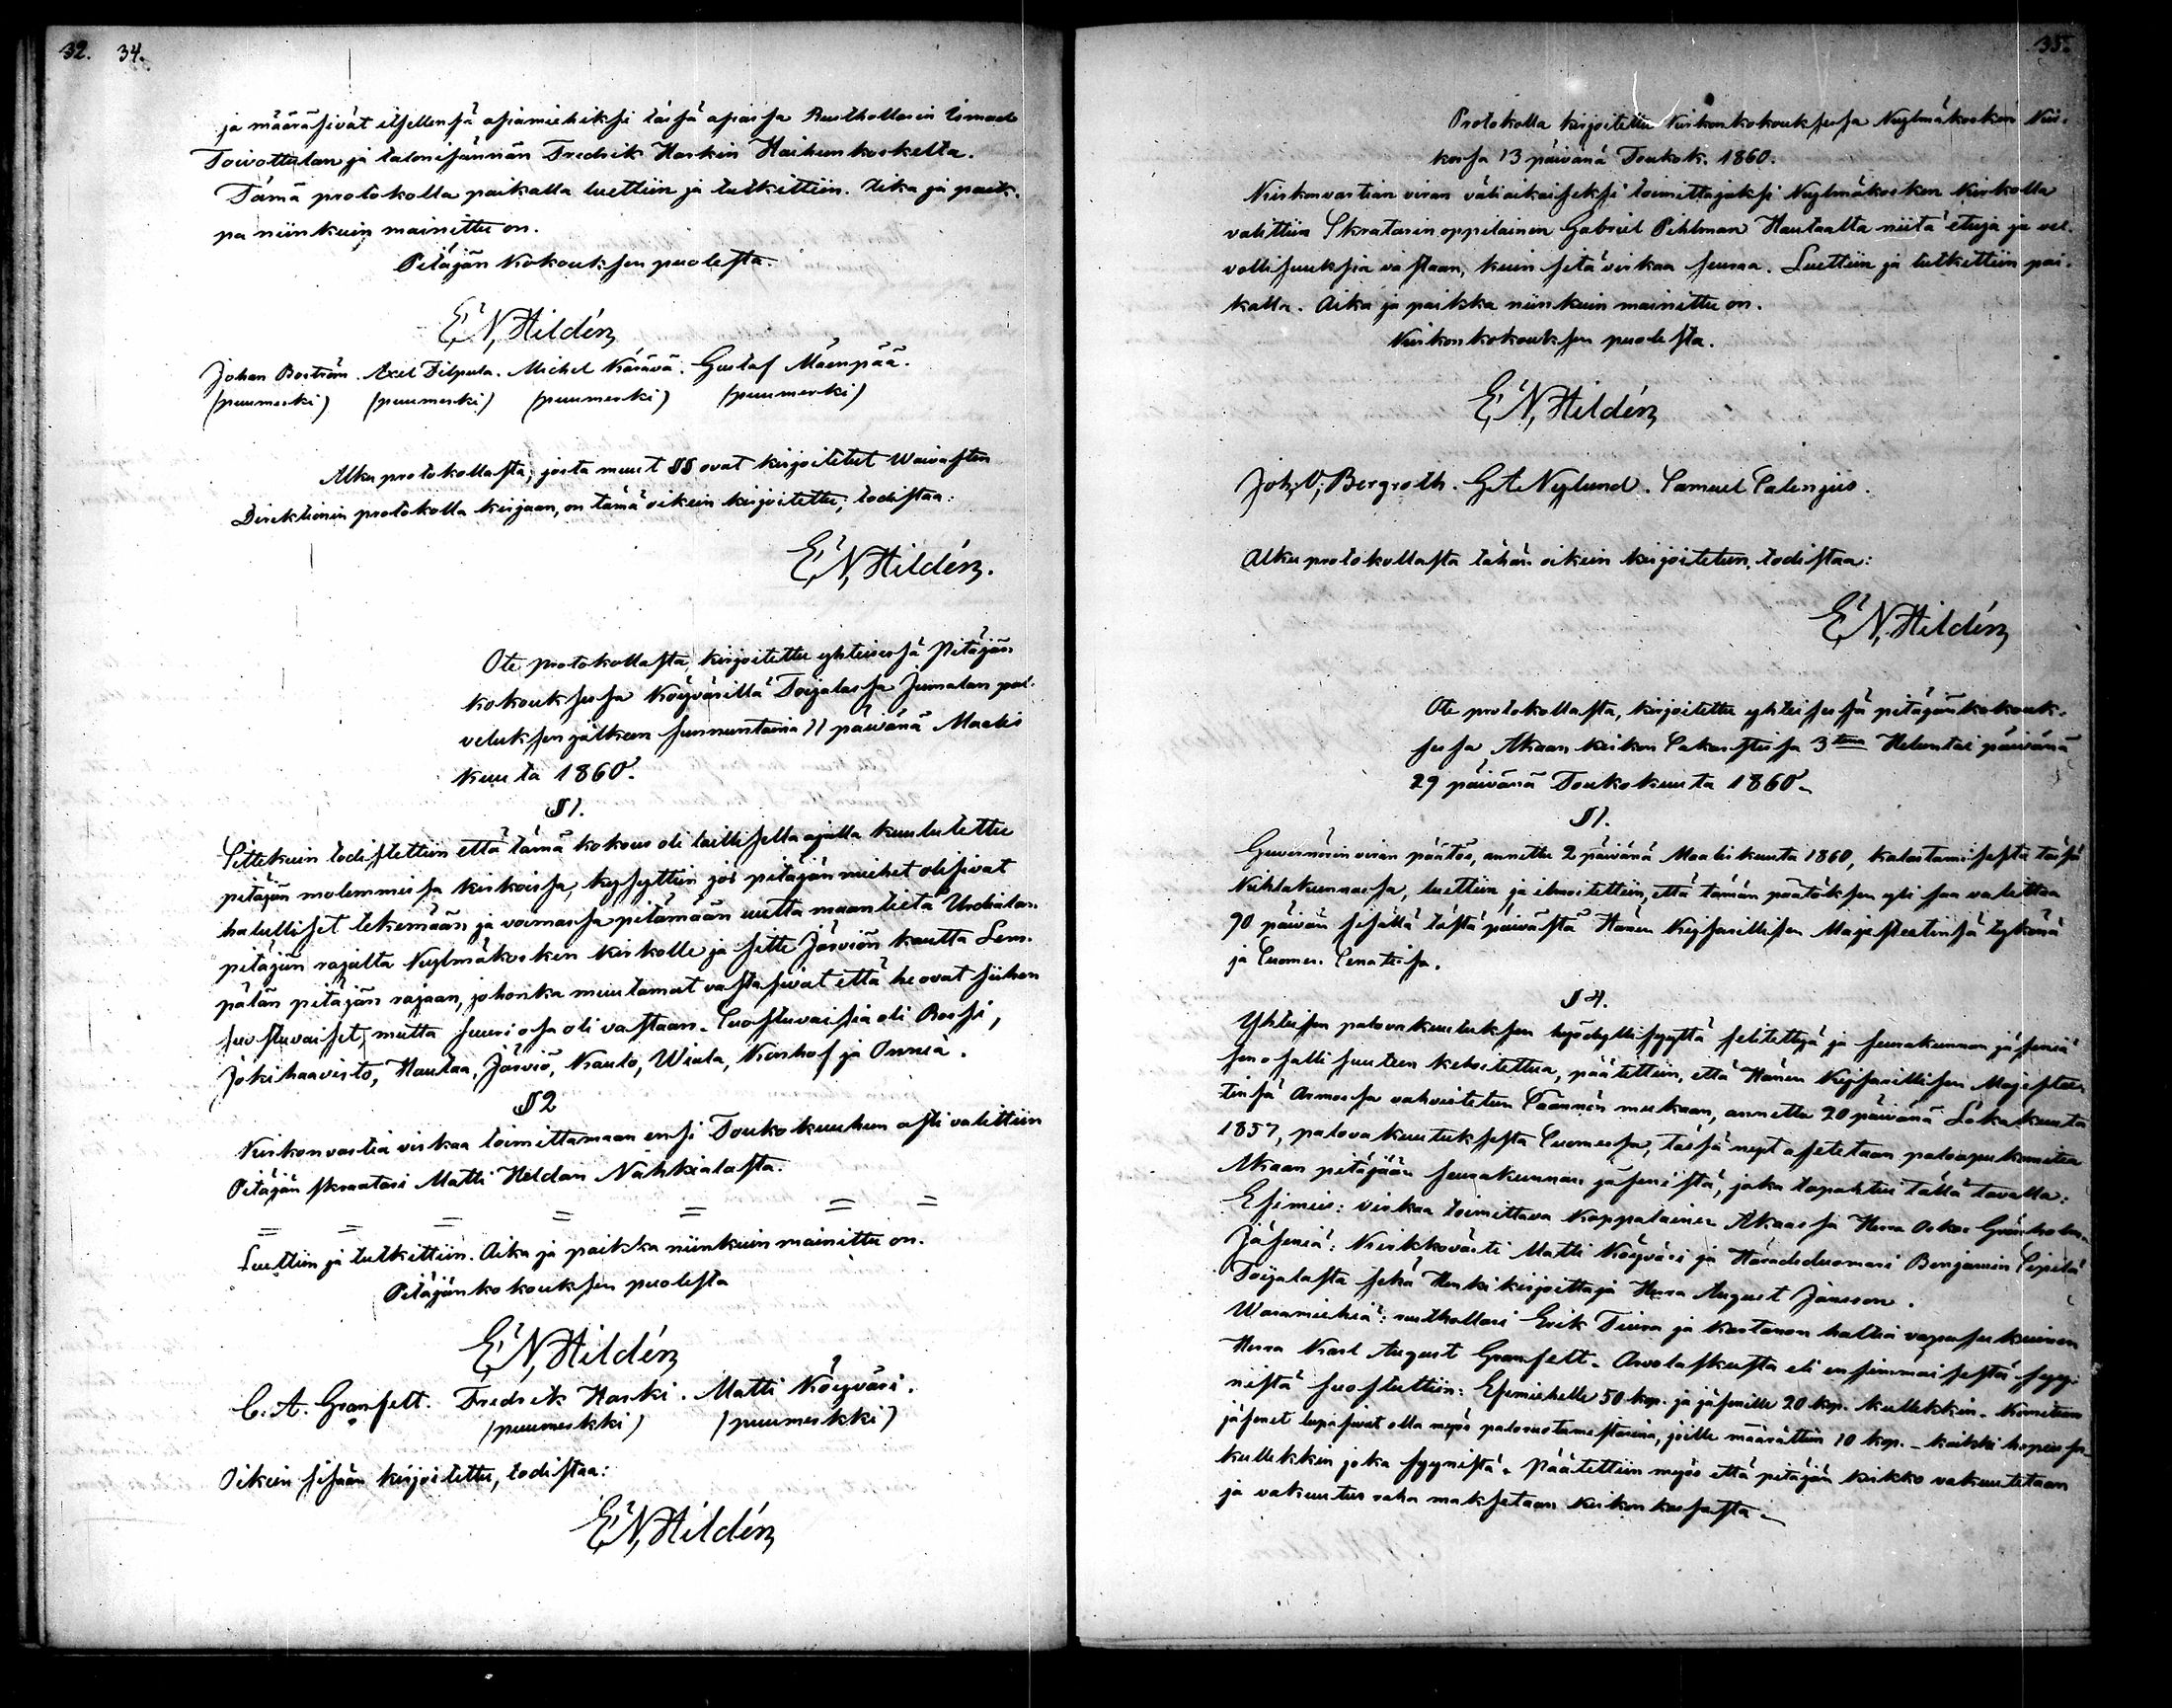 32. 34.
ja määräsivät itsellensä asiamiehiksi tässä asiassa Rusthollarin
Toivottulan ja talonisännän Fredrik Haskin Haihunkoskelta.
Tämä protokolla paikalla luettiin ja tutkittiin. Aika ja paik-
pa niinkuin mainittu on.
Pitäjän Kokouksen puolesta.
E, N, Hildén
Johan Boström. Axel Filpula. Michel Kärävä. Gustaf Mäenpää.
(puumerki) (puumerki) (puumerki) (puumerki)
Alkuprotokollasta, josta muut §§ ovat kirjoitetut Waivasten
Direktionin protokolla kirjaan, on tämä oikein kirjoitettu, todistaa:
E, N, Hildén.
Ote protokollasta, kirjoitettu yhteisessä Pitäjän
kokouksessa Köyvärillä Toijalassa Jumalan pal-
veluksen jälkeen sunnuntaina 11 päivänä Maalis
kuuta 1860.
§ 1.
Sittekuin todistettiin että tämä kokous oli laillisella ajalla kuulutettu
pitäjän molemmissa kirkoissa, kysyttiin jos pitäjän miehet olisivat
halulliset tekemään ja voimassa pitämään uutta maantietä Urdialan
pitäjän rajalta Kylmäkosken kirkolle ja sitte Järviön kautta Lem-
pälän pitäjän rajaan, johonka muutamat vastasivat että he ovat siihen
suostuvaiset, mutta suuri osa oli vastaan. Suostuvaisia oli Rossi,
Jokihaavisto, Hautaa, Järviö, Kauto, Wiala, Kurhof ja Onniä.
§ 2
Kirkonvartia virkaa toimittamaan ensi Toukokuuhun asti valittiin
Pitäjän skraatari Matti Heldan Nahkialasta.
= = = = = = =
Luettiin ja tutkittiin. Aika ja paikka niinkuin mainittu on.
Pitäjänkokouksen puolesta
E, N, Hildén
C. A. Granfelt. Fredrik Haski. Matti Köyväri.
(puumerkki) (puumerkki)
Oikein sisään kirjoitettu, todistaa:
E, N, Hildén
35.
Protokolla kirjoitettu Kirkonkokouksessa Kylmäkosken Kir-
kossa 13 päivänä Toukok. 1860.
Kirkonvartian viran väliaikaiseksi toimittajaksi Kylmäkosken Kirkolla
valittiin Skratarin oppilainen Gabriel Pihlman Hautaalta niitä etuja ja vel-
vollisuuksia vastaan, kuin sitä virkaa seuraa. Luettiin ja tutkittiin pai-
kalla. Aika ja paikka niinkuin mainittu on.
Kirkonkokouksen puolesta.
E, N, Hildén
Joh, V, Bergroth. G A Nylund. Samuel Salenius.
Alkuprotokollasta tähän oikein kirjoitetun, todistaa:
E, N, Hildén
Ote protokollasta, kirjoitettu yhteisessä pitäjänkokouk-
sessa Akaan kirkon Sakastissa 3:tena Heluntai päivänä
29 päivänä Toukokuuta 1860.
§ 1.
Guvernörin viran päätös, annettu 2 päivänä Maaliskuuta 1860, kalastamisesta tässä
Kihlakunnassa, luettiin ja ilmoitettiin, että tämän päätöksen yli saa valittaa
90 päivän sisällä tästä päivästä Hänen Keisarillisen Majesteetinsä tykönä
ja Suomen Senatissa.
§ 4.
Yhteisen palovakuutuksen hyödyllisyyttä selitettyä ja seurakunnan jäseniä
sen osallisuuteen kehoitettua, päätettiin, että Hänen Keisarillisen Majestee-
tinsä Armossa vahvistetun Säännön mukaan, annettu 20 päivänä Lokakuuta
1857, palovakuutuksesta Suomessa, tässä nyt asetetaan paloapu komitea
Akaan pitäjään seurakunnan jäsenistä, joka tapahtui tällä tavalla:
Esimies: virkaa toimittava Kappalainen Akaassa Herra Oskar Grönholm.
Jäseniä: Kirkkovärti Matti Köyväri ja Häradsdomari Benjamin Sipilä
Toijalasta sekä Henkikirjoittaja Herra August Jansson.
Waramiehiä: rusthollari Erik Tiura ja kartanon haltia vapasukuinen
Herra Karl August Granfelt. Arvolaskusta eli ensimmäisestä syy-
nistä suostuttiin: Esimiehelle 50 kop. ja jäsenille 20 kop. kullekkin. Komitean
jäsenet lupasivat olla myös paloruotumestarina, joille määrättiin 10 kop. kaikki hopiassa
kullekkin joka syynistä. Päätettiin myös että pitäjän kirkko vakuutetaan
ja vakuutus raha maksetaan kirkon kassasta.